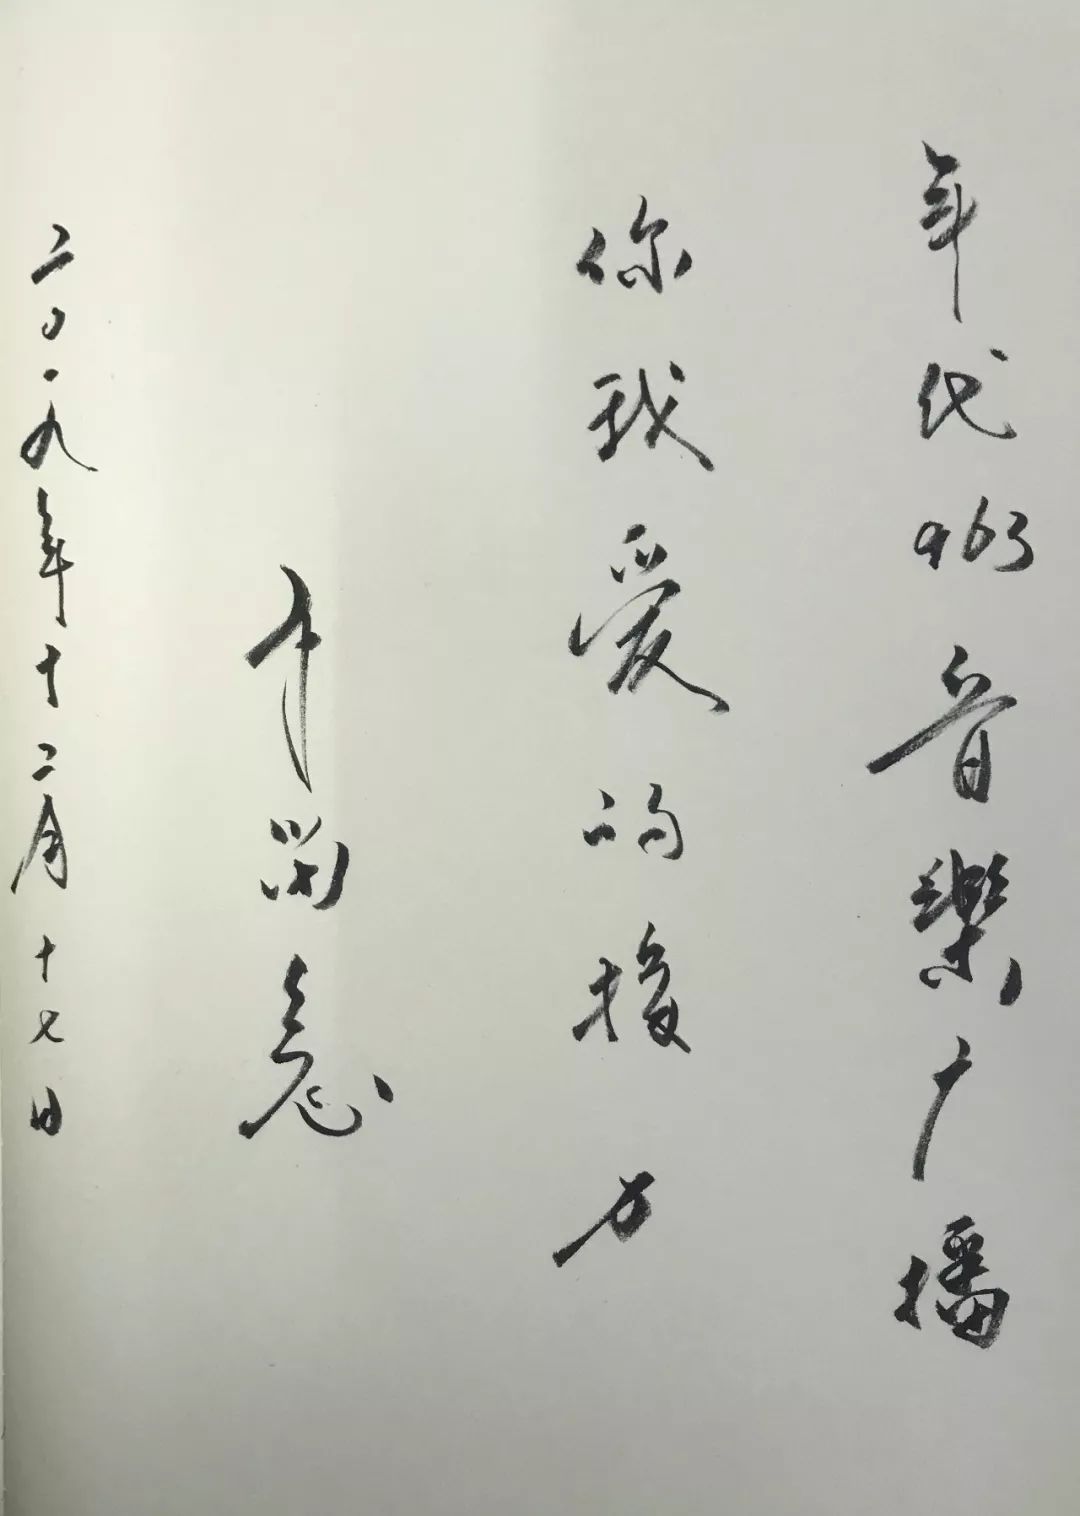 年代963音樂广播
你我爱的接力
卞留念
二〇一九年十二月十七日